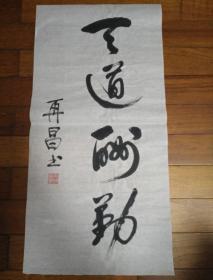 天道酬勤
再昌书